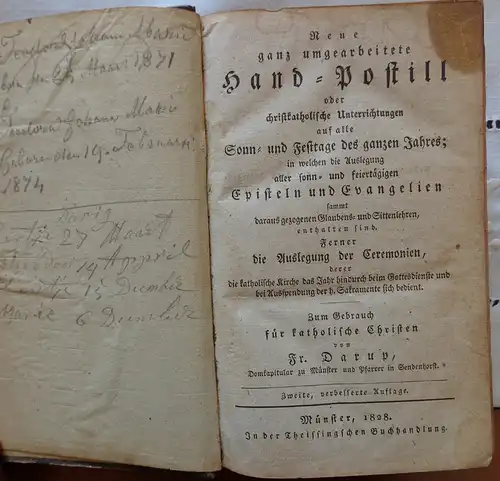 Johann
1871
Johann Maria
Geboren den 19.
1874
27 Maart
19 Appril
15 Dcembir
6 Dcembir
Neue
ganz umgearbeitete
Hand-Postill
oder
christkatholische Unterrichtungen
auf alle
Sonn- und Festtage des ganzen Jahres;
in welchen die Auslegung
aller sonn- und feiertägigen
Episteln und Evangelien
sammt
daraus gezogenen Glaubens- und Sittenlehren,
enthalten sind.
Ferner
die Auslegung der Ceremonien,
derer
die katholische Kirche das Jahr hindurch beim Gottesdienste und
bei Ausspendung der h. Sakramente sich bedient.
Zum Gebrauch
für katholische Christen
von
Fr. Darup,
Domkapitular zu Münster und Pfarrer in Sendenhorst.
Zweite, verbesserte Auflage.
Münster, 1828.
In der Theissingschen Buchhandlung.